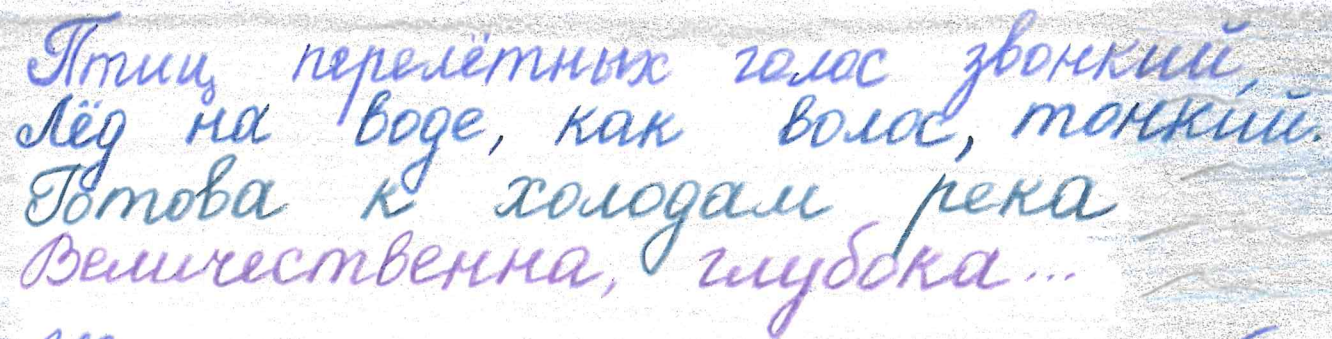 Птиц перелётных голос звонкий,
Лёд на воде, как волос, тонкий.
Готова к холодам река
Величественна, глубока...